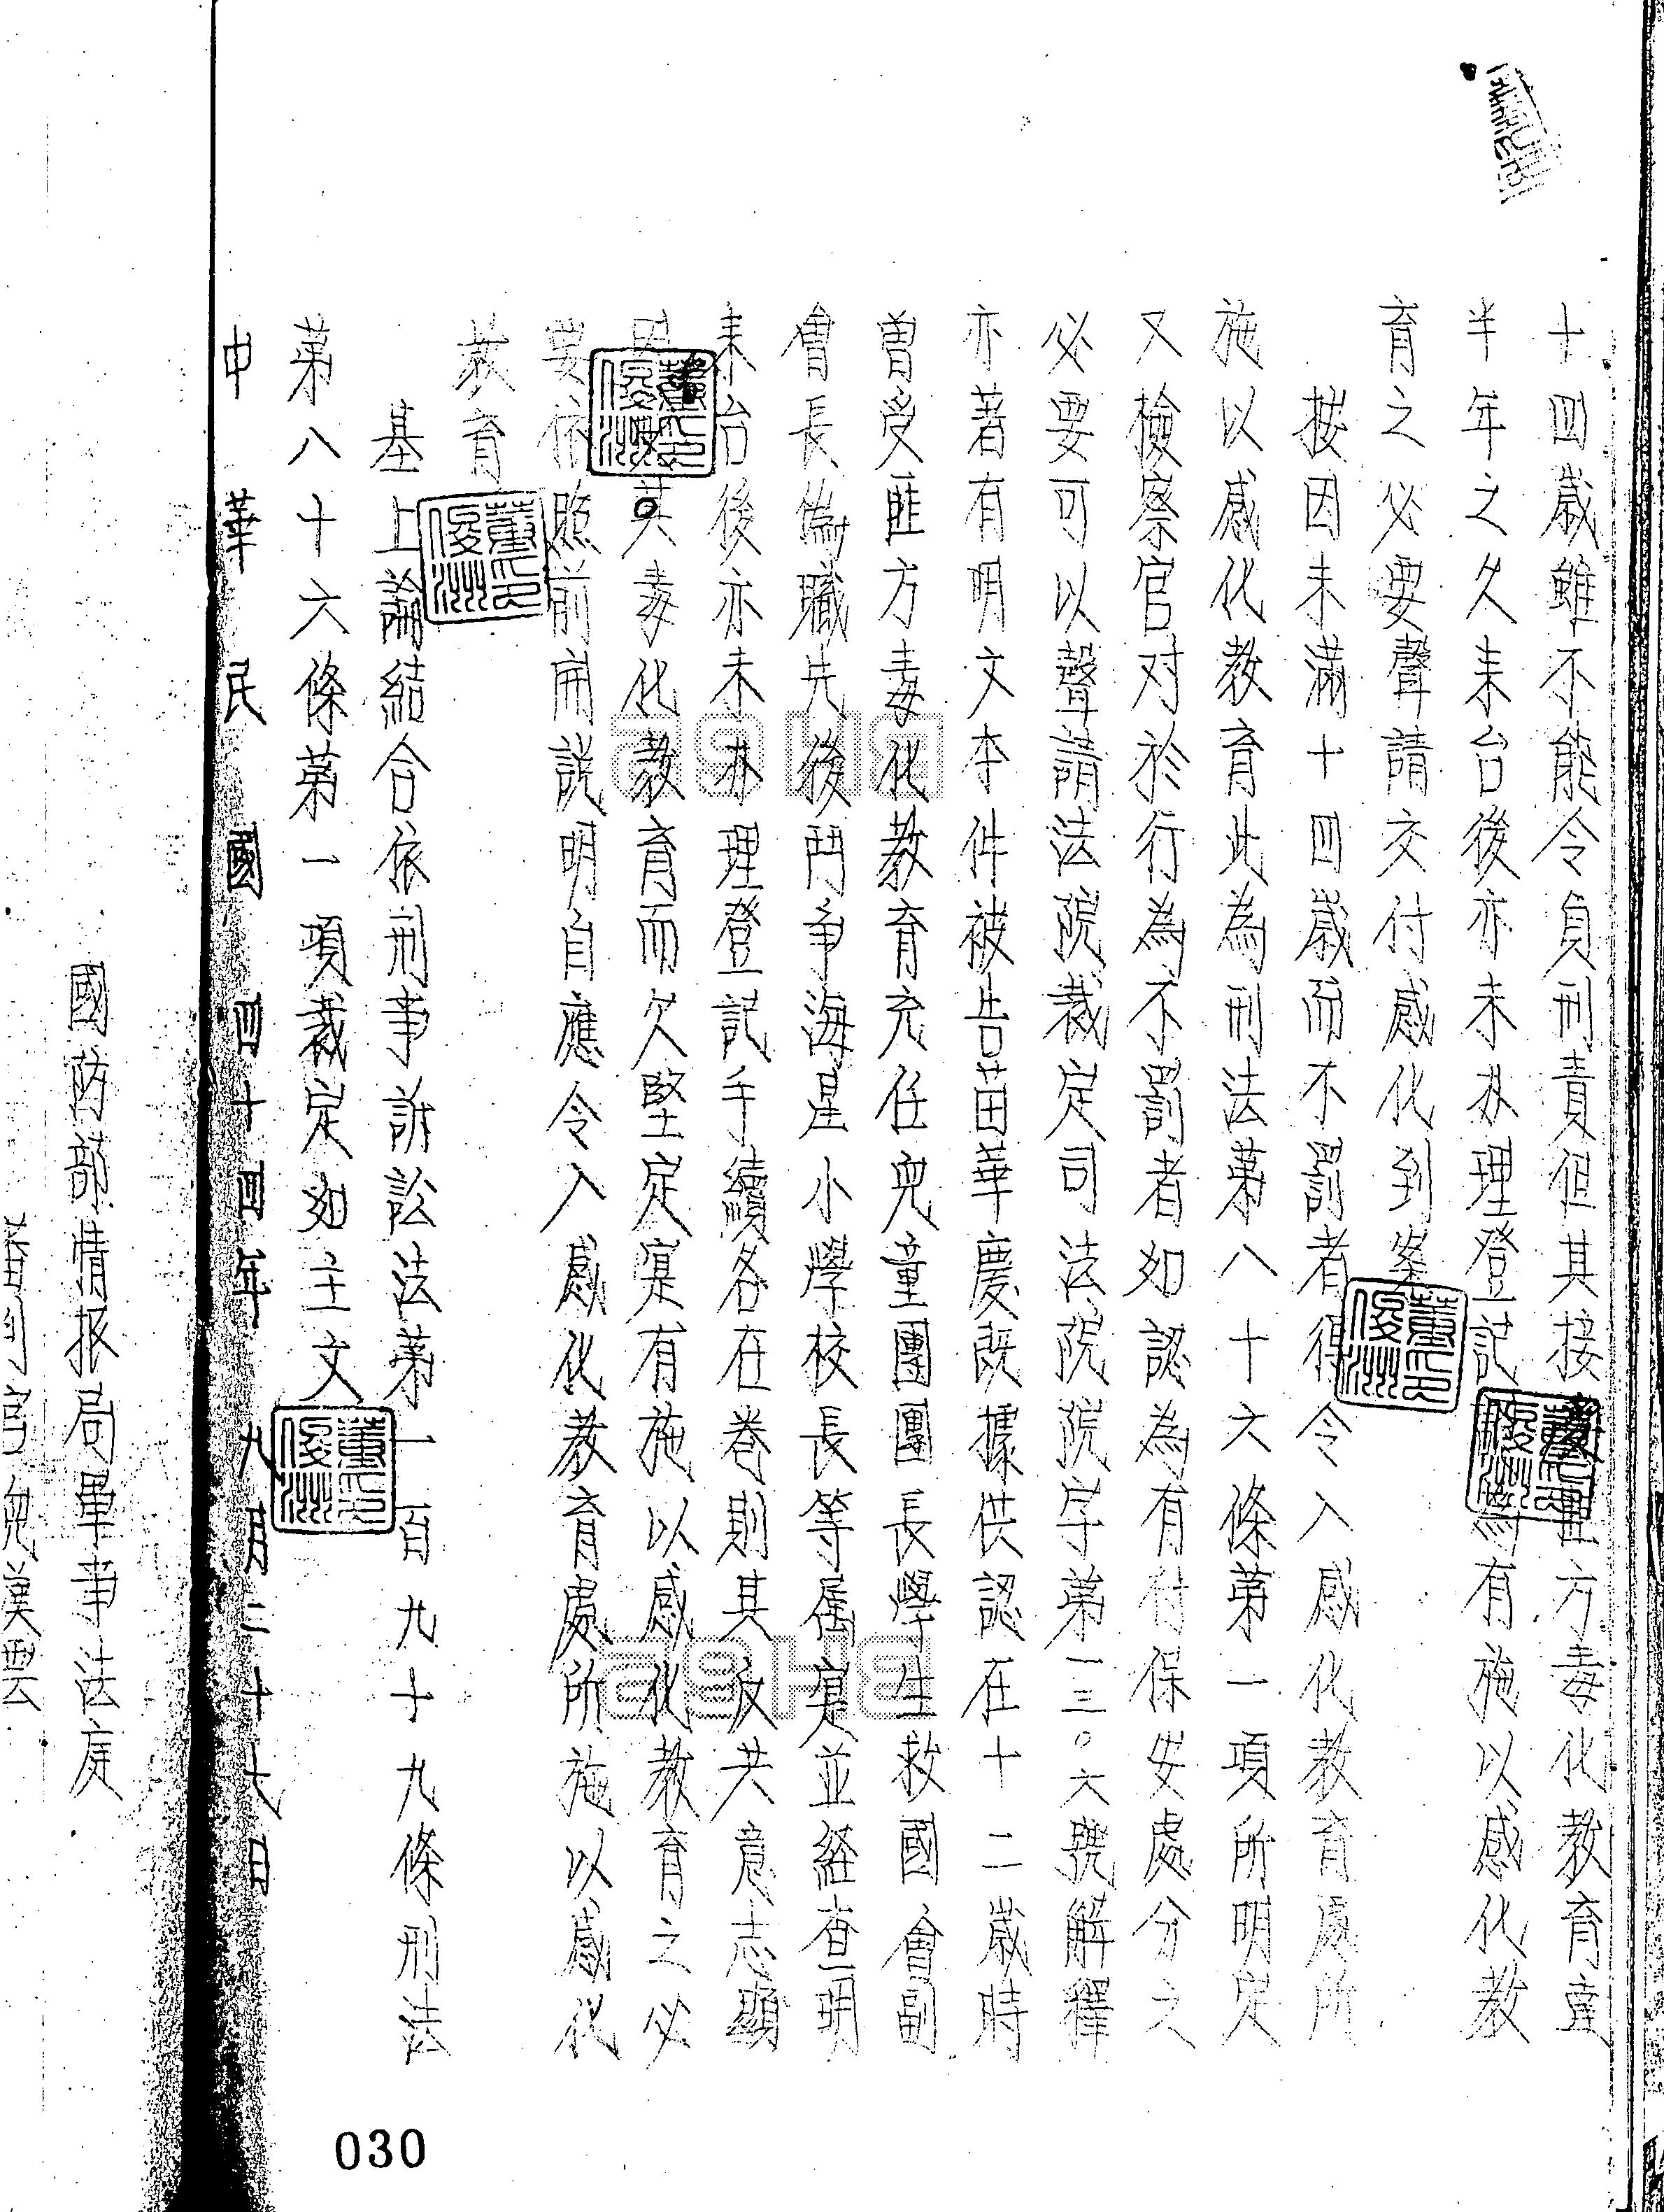 十四歲雖不能令負刑責但其接受匪方毒化教育達
半年之久来台後亦未办理登記有施以感化教
育之必要聲請交付感化到案
按因未滿十四歲而不罰者得令入感化教育處所
施以感化教育此為刑法第八十六條第一項所明定
又檢察官对於行為不罰者如認為有付保安處分之
必要可以聲請法院裁定司法院院字第一三〇六號解釋
亦著有明文本件被告苗華慶既據供認在十二歲時
曾受匪方毒化教育充任兒童團團長學生救國會副
會長偽職先後鬥爭海星小學校長等屬寔並経查明
来台後亦未办理登記手續各在卷則其反共意志顯
因受其毒化教育而欠堅定寔有施以感化教育之必
要依照前開説明自應令入感化教育處所施以感化
教育
基上論結合依刑事訴訟法第一百九十九條刑法
第八十六條第一項裁定如主文
中華民國四十四年九月二十七日
國防部情报局軍事法庭
審判官
董俊洲印
董俊洲印
董俊洲印
董俊洲印
董俊洲印
030